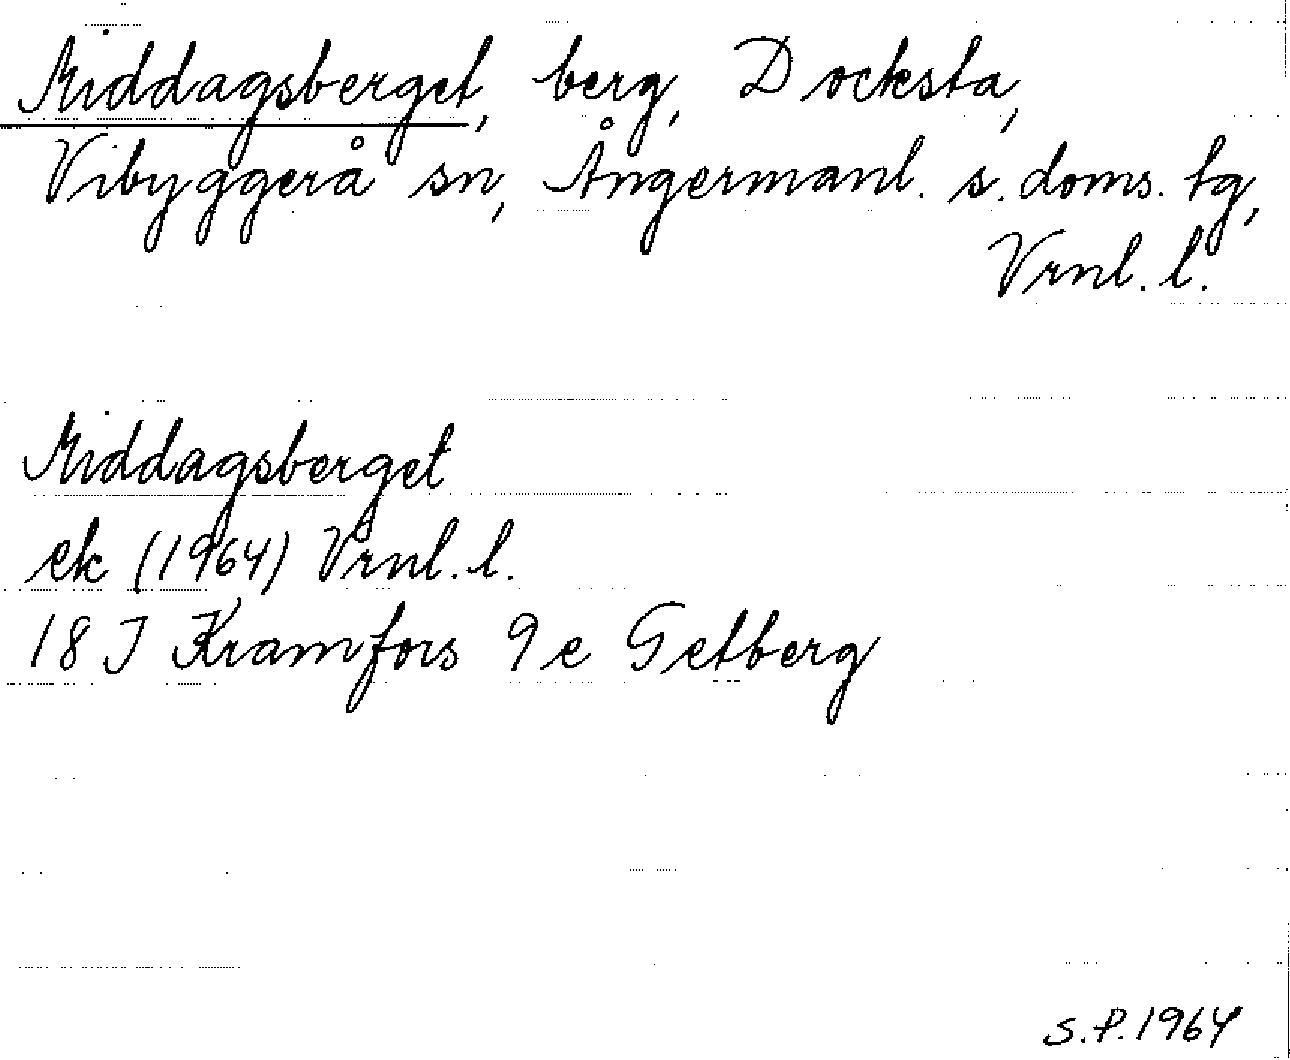 Middagsberget, berg, Docksta,
Vibyggerå sn, Ångermanl. s. doms. tg,
Vrnl. l.
Middagsberget
ek (1964) Vrnl. l.
18 J Kramfors 9 e Getberg
S.P. 1964